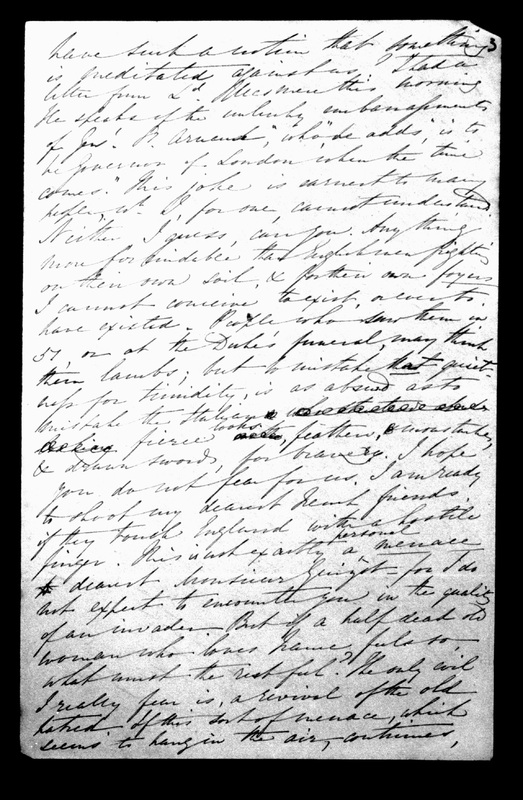 3
have such a notion that something
is meditated against us. I had a
letter from Ld Ellesmere this morning
He speaks of the unlucky embarrassments
of Genl St Arnaud, "who", he adds, "is to
be Governor of London when the time
comes." This joke is earnest to many
people, wh I, for one, cannot understand.
Neither I guess, can you. Any thing
more formidable than Englishmen fighting
on their own soil, & for their own foyers
I cannot conceive to exist, or ever to
have existed. People who saw them in
51, or at the Duke's funeral, may think
them lambs; but to mistake that quiet-
ness for timidity, is as absurd as to
mistake the
fierce looks, feathers, & moustaches,
& drawn swords, for bravery. I hope
you do not fear for us. I am ready
to shoot my dearest French friends,
if they touch England with a hostile
finger. This is not exactly a personal menace
dearest Monsieur Guizot for I do
not expect to encounter you in the quality
of an invader. But if a half dead old
woman who loves France, feels so,
what must the rest feel? The only evil
I really fear is, a revival of the old
hatred. If this sort of menace, which
seems to hang in the air, continues,